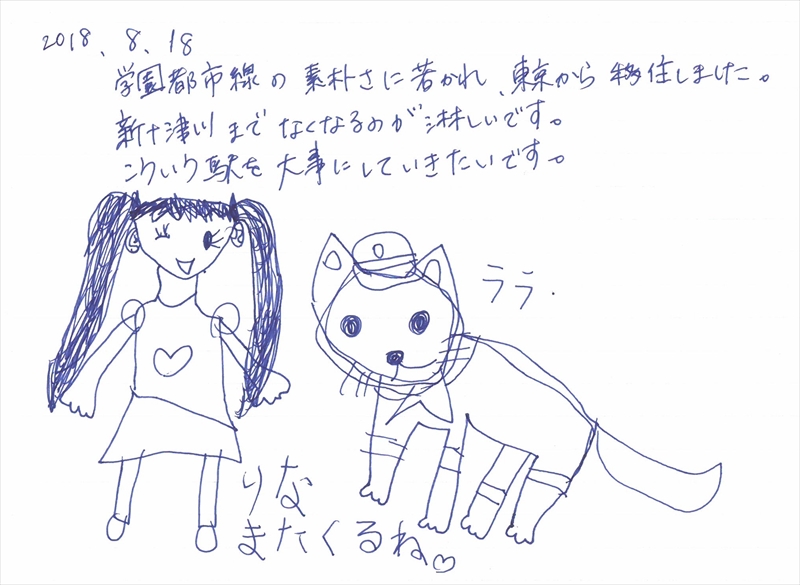 2018. 8. 18
学園都市線の素朴さに若かれ、東京から移住しました。
新十津川までなくなるのが淋しいです。
こういう駅を大事にしていきたいです。
ララ.
りな
またくるね♡